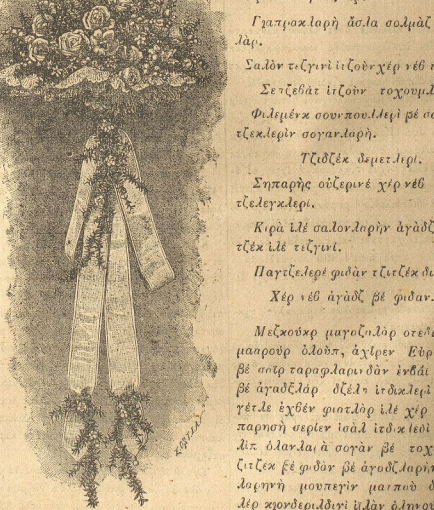 Γιαπρακλαρὴ ἄσλα σολμὰζ
λάρ.
Σαλὸν τεζγινὶ ἰτζοὺν χὲρ νὲβ
Σετζεβὰτ ἰτζοὺν τοχουμλ
Φιλεμένκ σουνπουλλερὶ βὲ σο
τζεκλερὶν σογανλαρή.
Τζιδζὲκ δεμετλερί.
Σηπαρὴς οὐζερινὲ χὲρ νὲβ
τζελεγκλερί.
Κιρὰ ἰλὲ σαλονλαρὴν ἀγὰδζ
τζὲκ ἰλὲ τεζγινί.
Παγτζελερὲ φιδὰν τζιτζὲκ δι
Χὲρ νὲβ ἀγὰδζ βὲ φιδαν.
Μεζκιοὺρ μαγαζαλὰρ ὀτεδ
μααροὺφ ὀλοὺπ, ἀχὶρεν Εὐρ
βὲ σαὶρ ταραφλαρινδὰν ἐνβάι
βὲ ἀγαδζλὰρ δζὲλπ ἰτδικλερὶ
γέτλε ἐχβὲν φιατλὰρ ἰλὲ χὲρ
παρησὴ σερίεν ἰσὰλ ἰτδικλερὶ
λὶπ ὀλανλαρὰ σογὰν βὲ τοχ
ζιτζὲκ βὲ φιδὰν βὲ ἀγαδζλαρὴν
λαρηνὴ μουπεγὶν
λὲρ κιονδεριλδιγὶ ἰλὰν ὀληνού